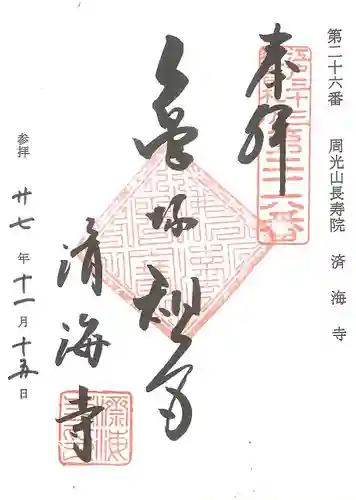 第二十六番 周光山長寿院 済海寺
奉拝
亀塚観音
済海寺
参拝 廿七年十一月十五日